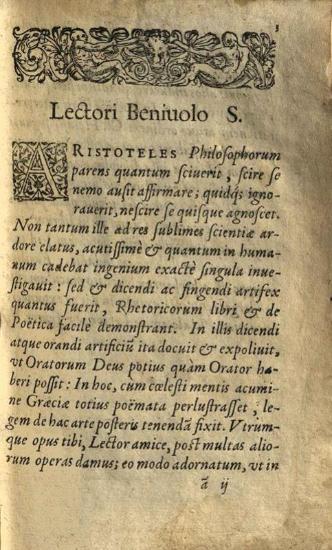 3
Lectori Beniuolo S.
ARISTOTELES Philosophorum
parens quantum sciuerit, scire se
nemo ausit affirmare; quidq; igno-
rauerit, nescire se quisque agnoscet.
Non tantum ille ad res sublimes scientiæ ar-
dore elatus, acutissimè & quantum in huma-
num cadebat ingenium exactè singula inue-
stigauit: sed & dicendi ac fingendi artifex
quantus fuerit, Rhetoricorum libri & de
Poëtica facilè demonstrant. In illis dicendi
atque orandi artificiũ ita docuit & expoliuit,
vt Oratorum Deus potius quàm Orator ha-
beri possit: In hoc, cum cœlesti mentis acumi-
ne Græciæ totius poëmata perlustrasset, le-
gem de hac arte posteris tenendã fixit. Vtrum-
que opus tibi, Lector amice, post multas alio-
rum operas damus; eo modo adornatum, vt in
ã ij